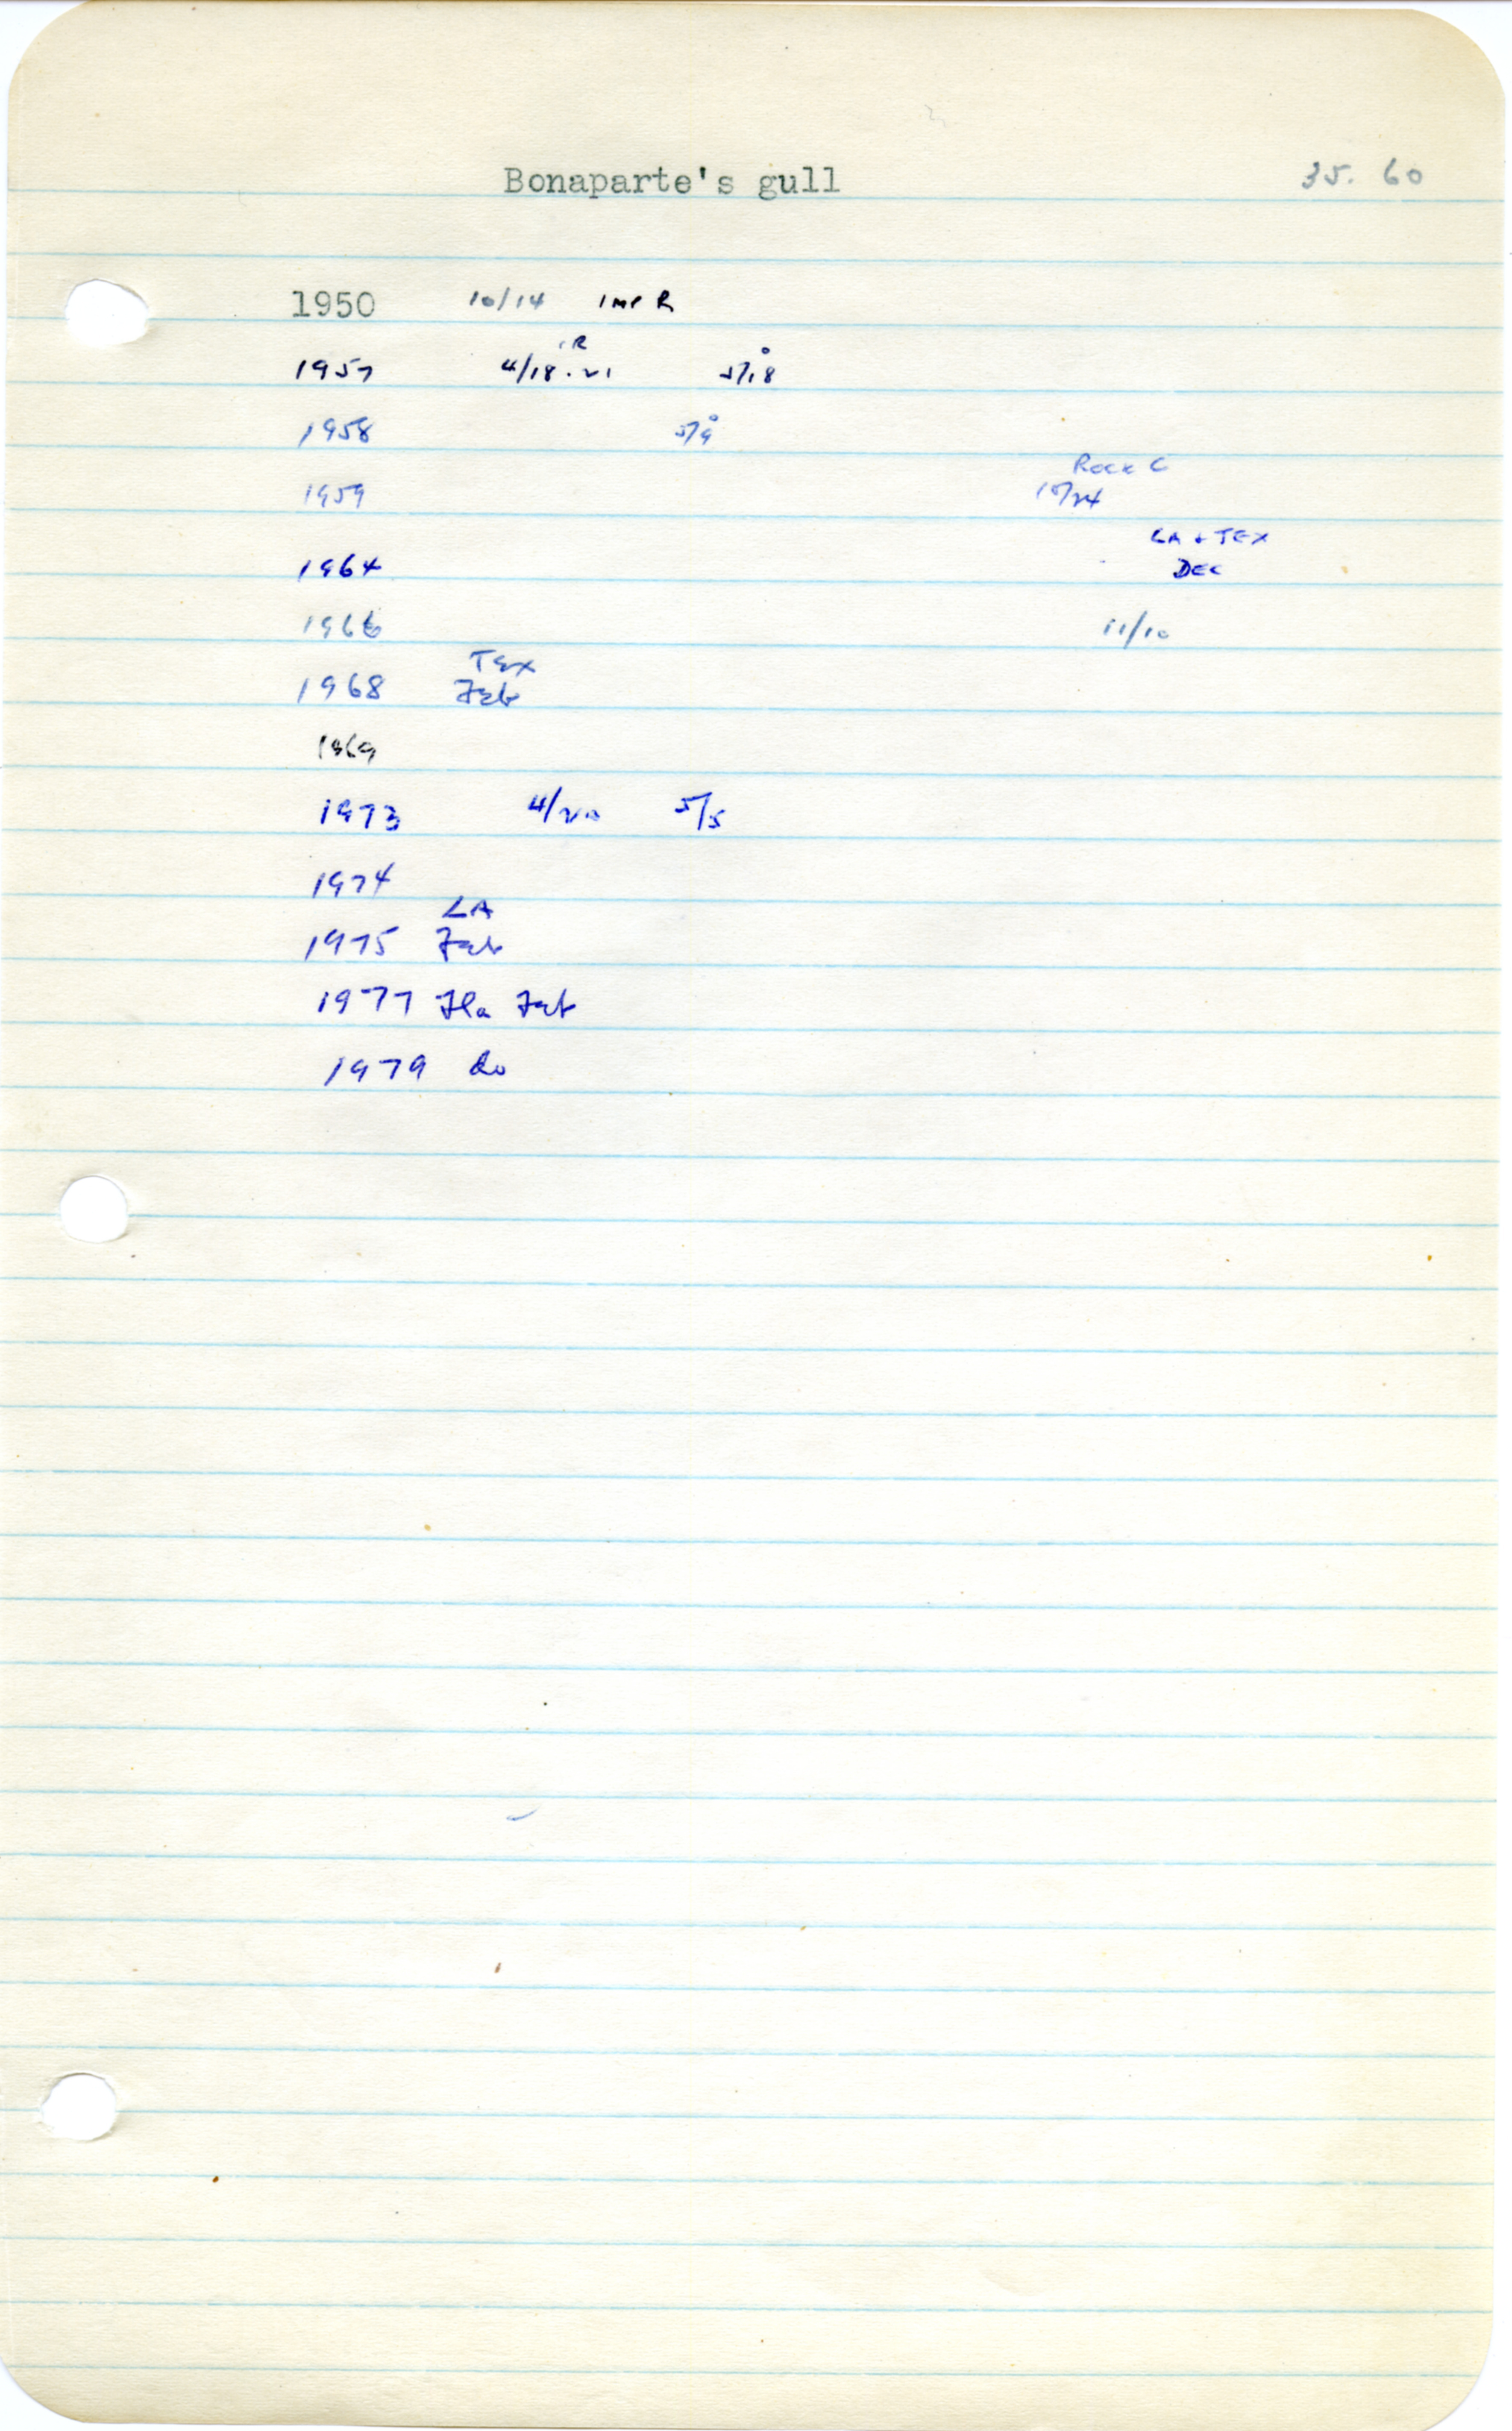 Bonaparte's gull 35. 60
1950 10/14 IMP R
IR
1957 4/18. 21 5/18
1958 5/9
Rock C
1959 10/24
LA + TEX
1964 DEC
1966 11/10
Tex
1968 Feb
1969
1973 4/20 5/5
1974
LA
1975 Feb
1977 Fla Feb
1979 do